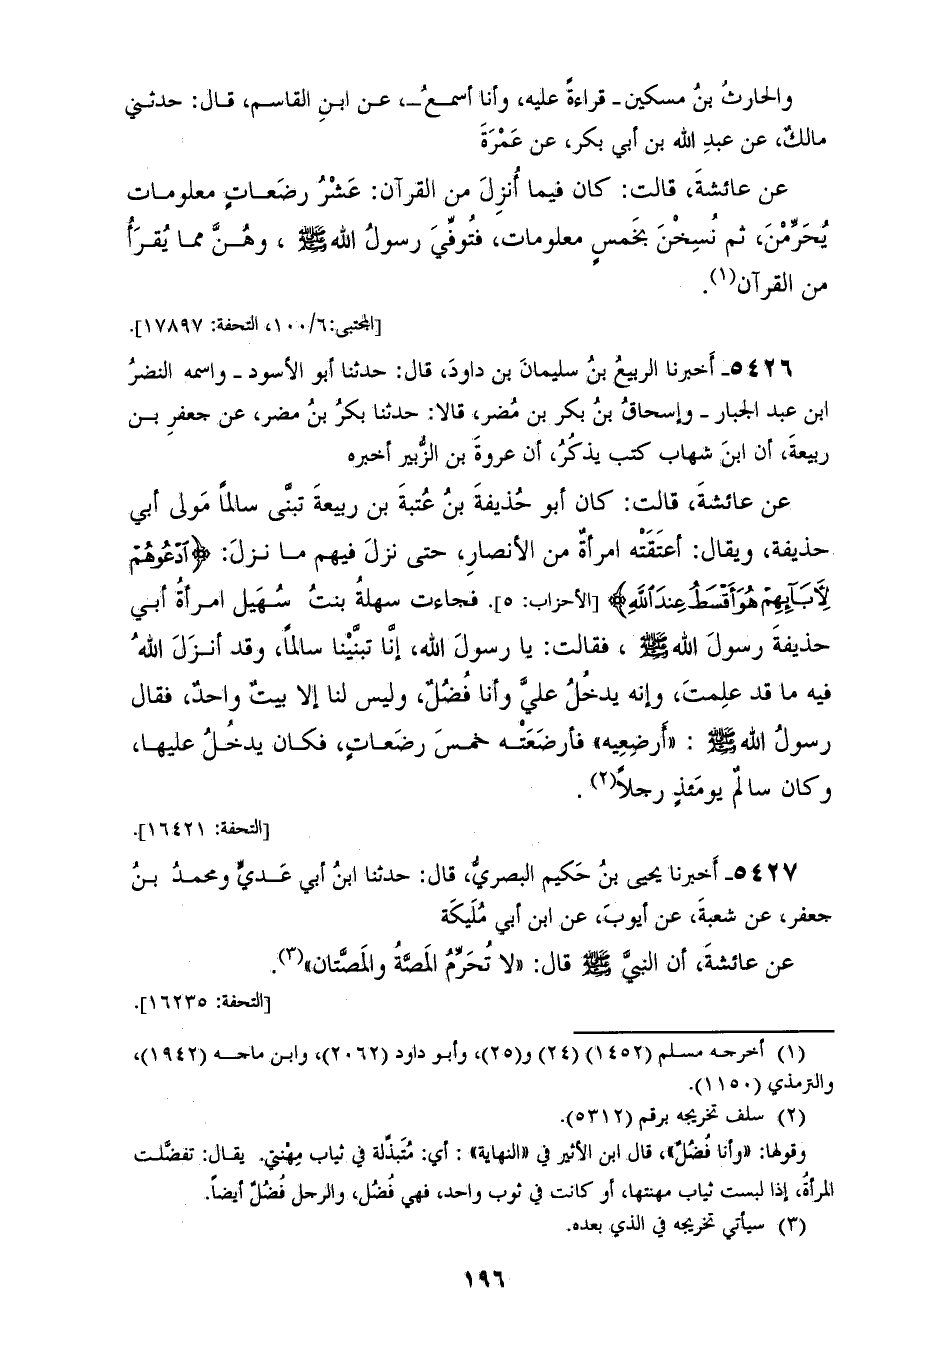 والحارثُ بنُ مسكين ـ قراءةً عليه، وأنا أسمـعُ ـ، عـن ابـنِ القاسـم، قـال: حدثـني
مالكٌ، عن عبدِ الله بن أبي بكر، عن عَمْرَةَ
عن عائشةَ، قالت: كان فيما أُنزِلَ من القرآن: عَشْرُ رضَعـاتٍ معلومـات
يُحَرِّمْنَ، ثم نُسِخْنَ بخَمسٍ معلومات، فتُوفِّيَ رسولُ الله ﷺ ، وهُـنَّ مما يُقـرَأُ
من القرآن(١).
[المجتبى: ١٠٠/٦، التحفة: ١٧٨٩٧].
٥٤٢٦ـ أَخبرنا الربيعُ بنُ سليمانَ بن داودَ، قال: حدثنا أبو الأسود ـ واسمه النضرُ
ابن عبد الجبار ـ وإسحاقُ بنُ بكر بن مُضر، قالا: حدثنا بكرُ بنُ مضر، عن جعفرِ بـن
ربيعةَ، أن ابنَ شهاب كتب يذكُرُ، أن عروةَ بن الزُّبير أخبره
عن عائشةَ، قالت: كان أبو حُذيفةَ بنُ عُتبةَ بن ربيعةَ تبنَّى سالماً مَولى أبي
حذيفة، ويقال: أعتَقَتْه امرأةٌ من الأنصارِ، حتى نزلَ فيهم مـا نـزلَ: ﴿ٱدْعُوهُمْ
لِأَبَآئِهِمْ هُوَ أَقْسَطُ عِندَ ٱللَّهِ﴾ [الأحزاب: ٥]. فجاءت سهلةُ بنتُ سُهَيل امـرأةُ أبـي
حذيفةَ رسولَ الله ﷺ ، فقالت: يا رسولَ الله، إنَّا تبنَّيْنا سالماً، وقد أنـزَلَ اللهُ
فيه ما قد علِمتَ، وإنه يدخُلُ عليَّ وأنا فُضُلٌ، وليس لنا إلا بيتٌ واحدٌ، فقال
رسولُ الله ﷺ : «أَرضِعِيه» فأرضَعَتْـه خمـسَ رضَعـاتٍ، فكـان يدخُـلُ عليهـا،
وكان سالمٌ يومَئذٍ رجلاً(٢) .
[التحفة: ١٦٤٢١].
٥٤٢٧ـ أَخبرنا يحيى بنُ حَكيم البصريُّ، قال: حدثنا ابنُ أبي عَـديٍّ ومحمـدُ بـنُ
جعفر، عن شعبةَ، عن أيوبَ، عن ابن أبي مُلَيكَة
عن عائشةَ، أن النبيَّ ﷺ قال: «لا تُحَرِّمُ المَصَّةُ والمَصَّتان»(٣).
[التحفة: ١٦٢٣٥].
(١) أخرجـه مسلم (١٤٥٢) (٢٤) و(٢٥)، وأبـو داود (٢٠٦٢)، وابـن ماجـه (١٩٤٢)،
والترمذي (١١٥٠).
(٢) سلف تخريجه برقم (٥٣١٢).
وقولها: «وأنا فُضُلٌ»، قال ابن الأثير في «النهاية» : أي: مُتَبذِّلة في ثياب مِهْنتي. يقـال: تفضَّلـت
المرأةُ، إذا لبست ثياب مهنتها، أو كانت في ثوب واحد، فهي فُضُل، والرجل فُضُلٌ أيضاً.
(٣) سيأتي تخريجه في الذي بعده.
١٩٦